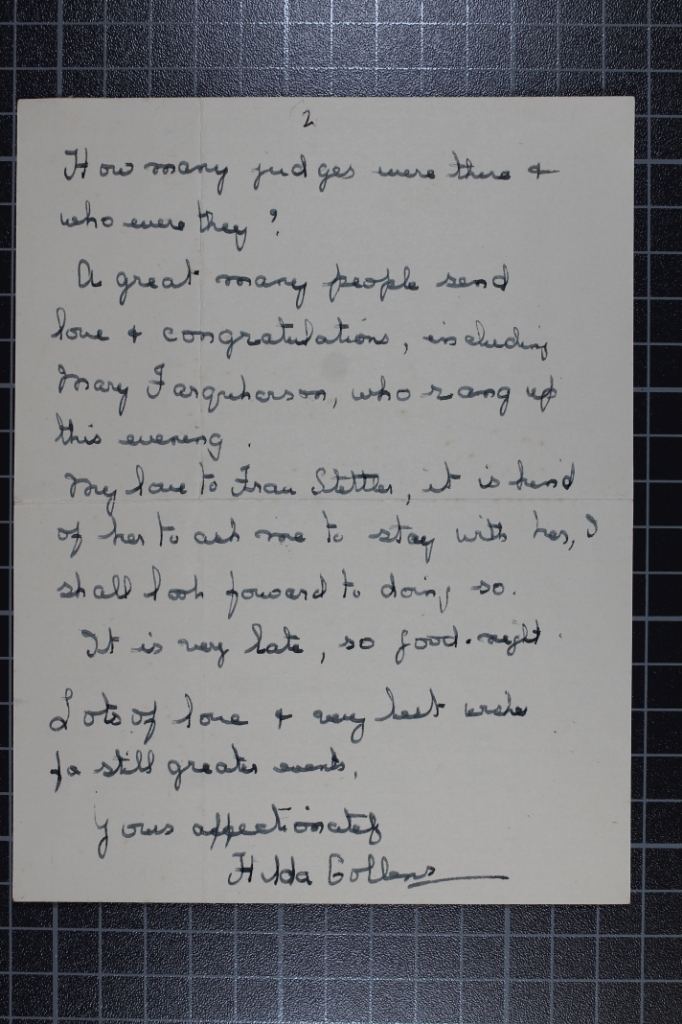 2
How many judges were there &
who were they?
A great many people send
love & congratulations, including
Mary Farquharson, who rang up
this evening.
My love to Frau Stettler, it is kind
of her to ask me to stay with her, I
shall look forward to doing so.
It is very late, so good-night.
Lots of love & very best wishes
for still greater events.
Yours affectionately
Hilda